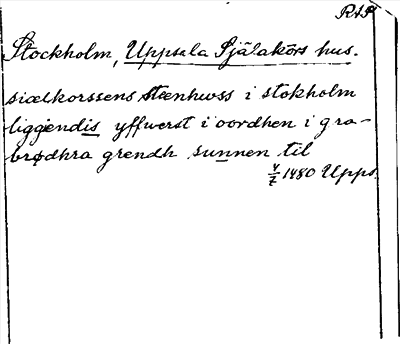 RAP
Stockholm, Uppsala Själakörs hus.
siælkorssens steenhwss i stokholm
liggendis yffwerst i oordhen i gra-
brødhra grendh sunnen til
4/2 1480 Upps.